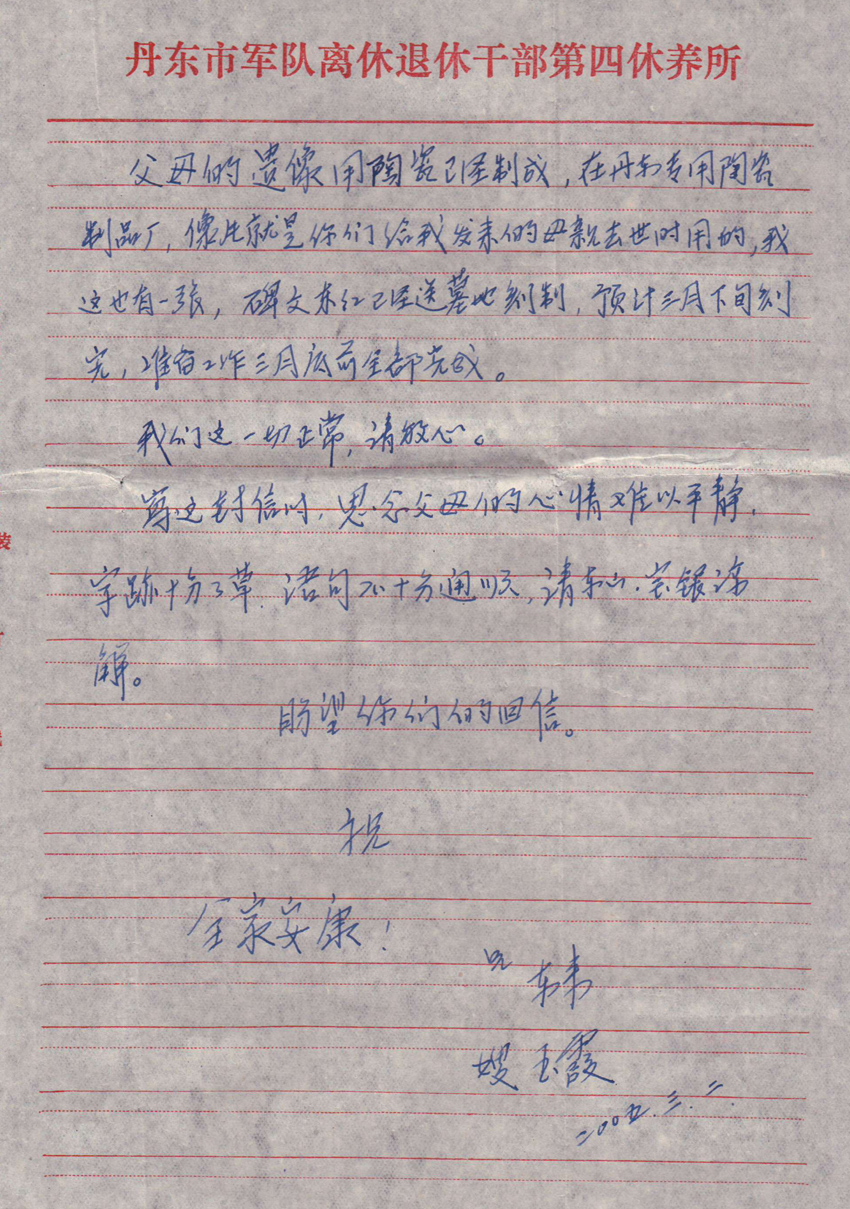 丹东市军队离休退休干部第四休养所
父母的遗像用陶瓷已经制成，在丹东专用陶瓷
制品厂，像片就是你们给我发来的母亲去世时用的，我
这也有一张，碑文东红已经送墓地刻制，预计三月下旬刻
完，准备工作三月底前全部完成。
我们这一切正常，请放心。
写这封信时，思念父母们的心情难以平静，
字跡十分了草，语句不十分通顺，请东山、宝银谅
解。
盼望你们的回信。
祝
全家安康！
兄 东
嫂 玉霞
二00五.三.二.